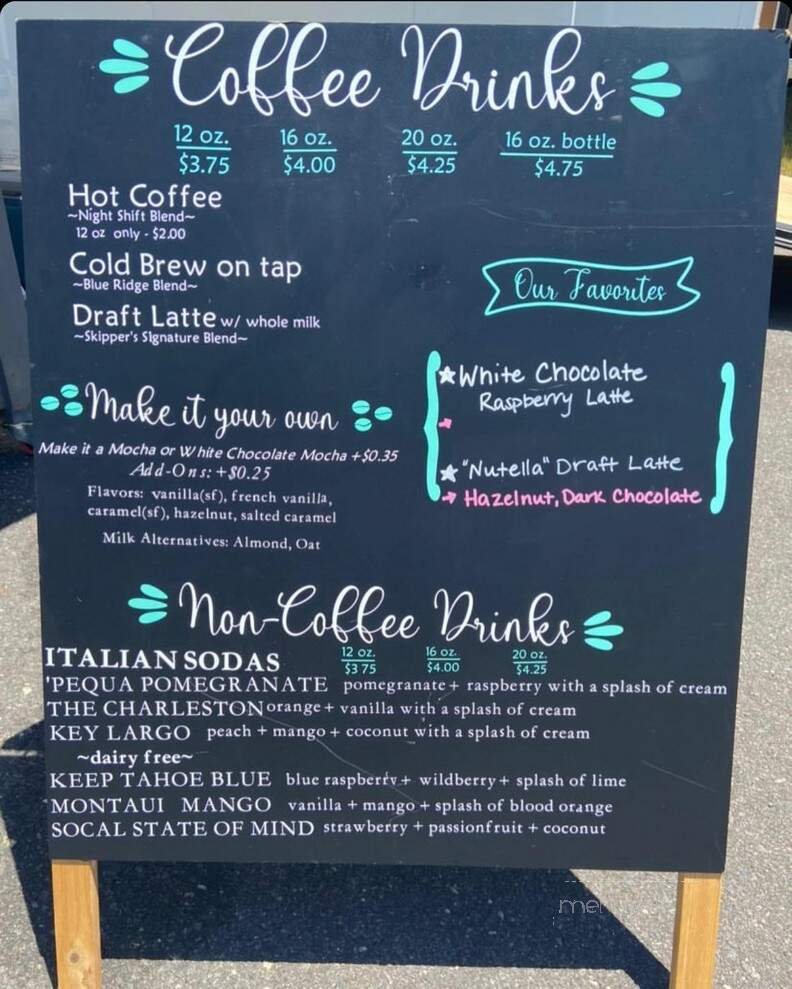 Coffee Drinks
12 oz. 16 oz. 20 oz. 16 oz. bottle
$3.75 $4.00 $4.25 $4.75
Hot Coffee
~Night Shift Blend~
12 oz only - $2.00
Cold Brew on tap
~Blue Ridge Blend~
Draft Latte w/ whole milk
~Skipper's Signature Blend~
Our Favorites
★White Chocolate
Raspberry Latte
→
★"Nutella" Draft Latte
→ Hazelnut, Dark Chocolate
Make it your own
Make it a Mocha or White Chocolate Mocha +$0.35
Add-Ons: +$0.25
Flavors: vanilla(sf), french vanilla,
caramel(sf), hazelnut, salted caramel
Milk Alternatives: Almond, Oat
Non-Coffee Drinks
12 oz. 16 oz. 20 oz.
ITALIAN SODAS $3 75 $4.00 $4.25
'PEQUA POMEGRANATE pomegranate + raspberry with a splash of cream
THE CHARLESTON orange + vanilla with a splash of cream
KEY LARGO peach + mango + coconut with a splash of cream
~dairy free~
KEEP TAHOE BLUE blue raspberry + wildberry + splash of lime
MONTAUI MANGO vanilla + mango + splash of blood orange
SOCAL STATE OF MIND strawberry + passionfruit + coconut